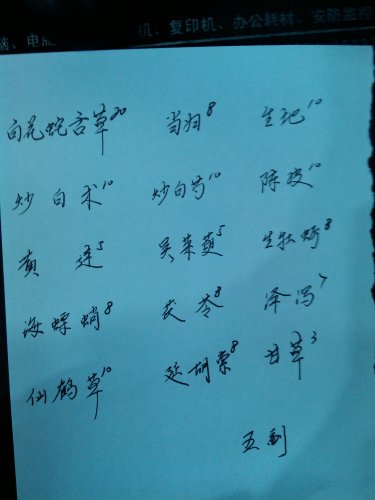 机、复印机、办公耗材、安防监控
白花蛇舌草20 当归8 生地10
炒白术10 炒白芍10 陈皮10
黄连5 吴茱萸5 生牡蛎8
海螵蛸8 茯苓8 泽泻7
仙鹤草10 延胡索8 甘草3
五剂